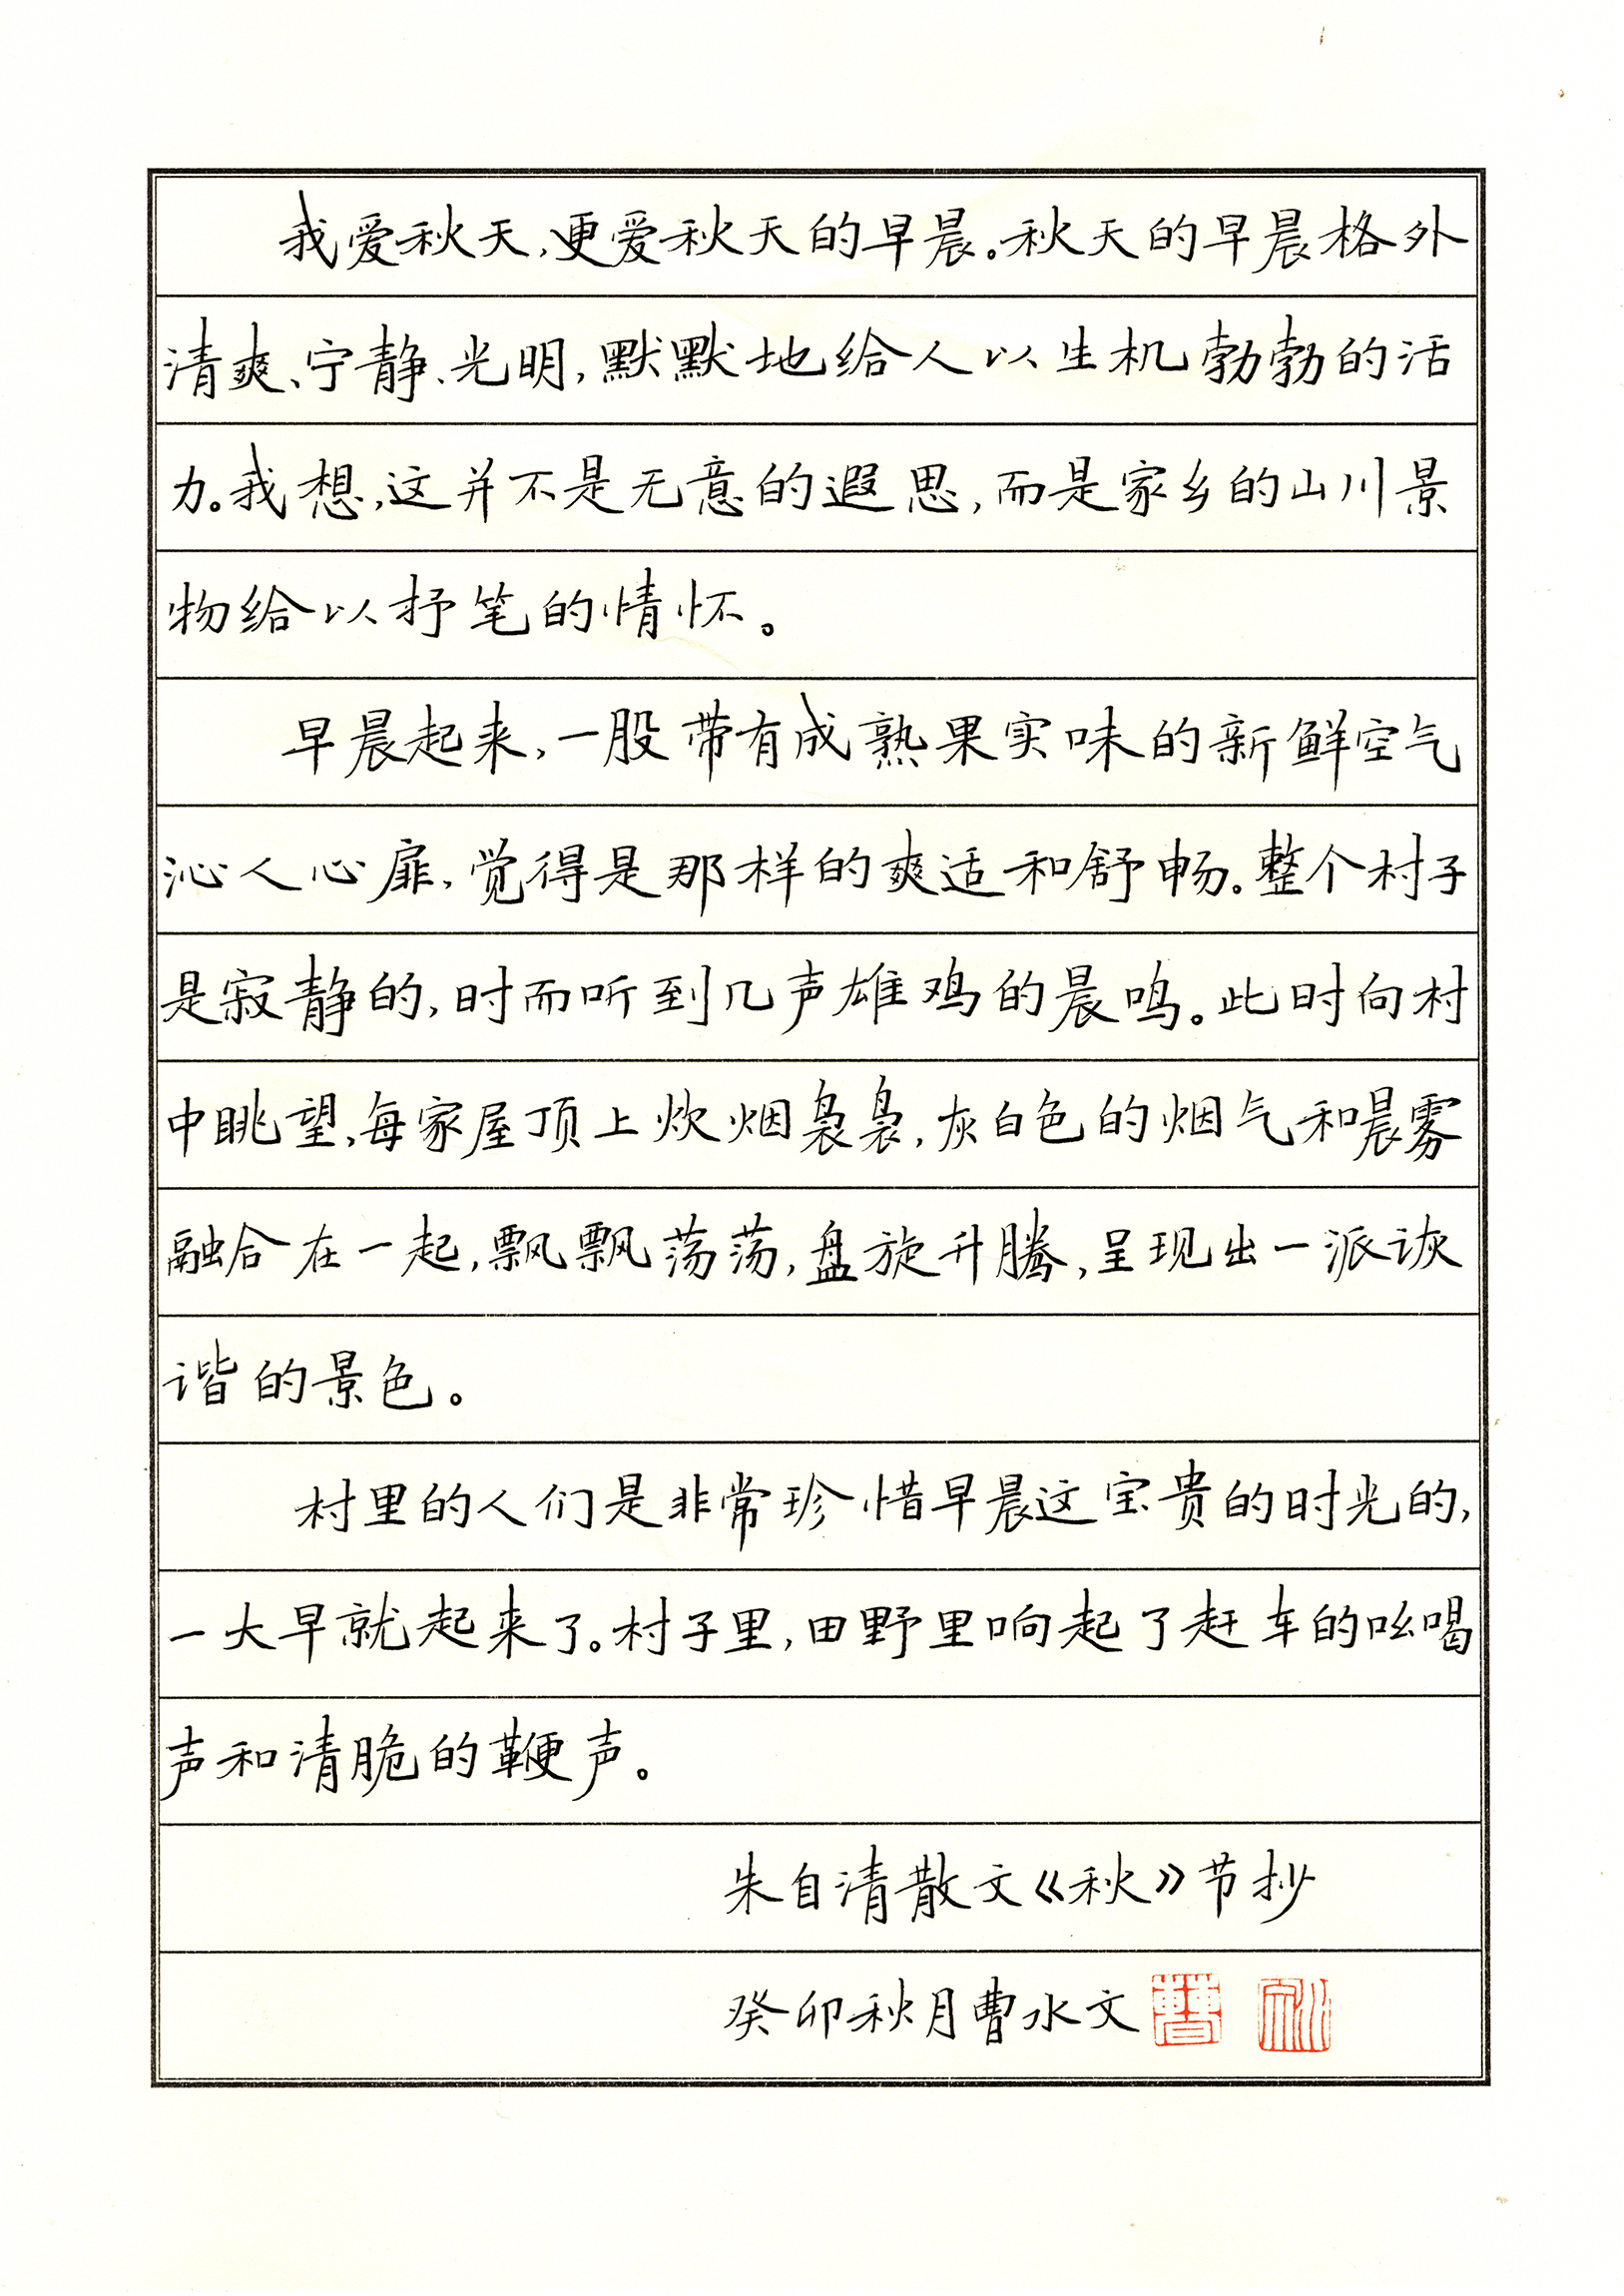 我爱秋天,更爱秋天的早晨。秋天的早晨格外
清爽、宁静、光明,默默地给人以生机勃勃的活
力。我想,这并不是无意的遐思,而是家乡的山川景
物给以抒笔的情怀。
早晨起来,一股带有成熟果实味的新鲜空气
沁人心扉,觉得是那样的爽适和舒畅。整个村子
是寂静的,时而听到几声雄鸡的晨鸣。此时向村
中眺望,每家屋顶上炊烟袅袅,灰白色的烟气和晨雾
融合在一起,飘飘荡荡,盘旋升腾,呈现出一派诙
谐的景色。
村里的人们是非常珍惜早晨这宝贵的时光的,
一大早就起来了。村子里,田野里响起了赶车的吆喝
声和清脆的鞭声。
朱自清散文《秋》节抄
癸卯秋月曹水文